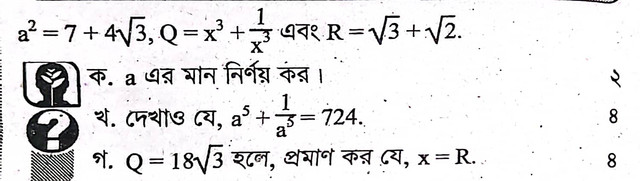 a² = 7 + 4√3, Q = x³ + 1/x³ এবং R = √3 + √2.
ক. a এর মান নির্ণয় কর। ২
খ. দেখাও যে, a⁵ + 1/a⁵ = 724. 8
গ. Q = 18√3 হলে, প্রমাণ কর যে, x = R. 8